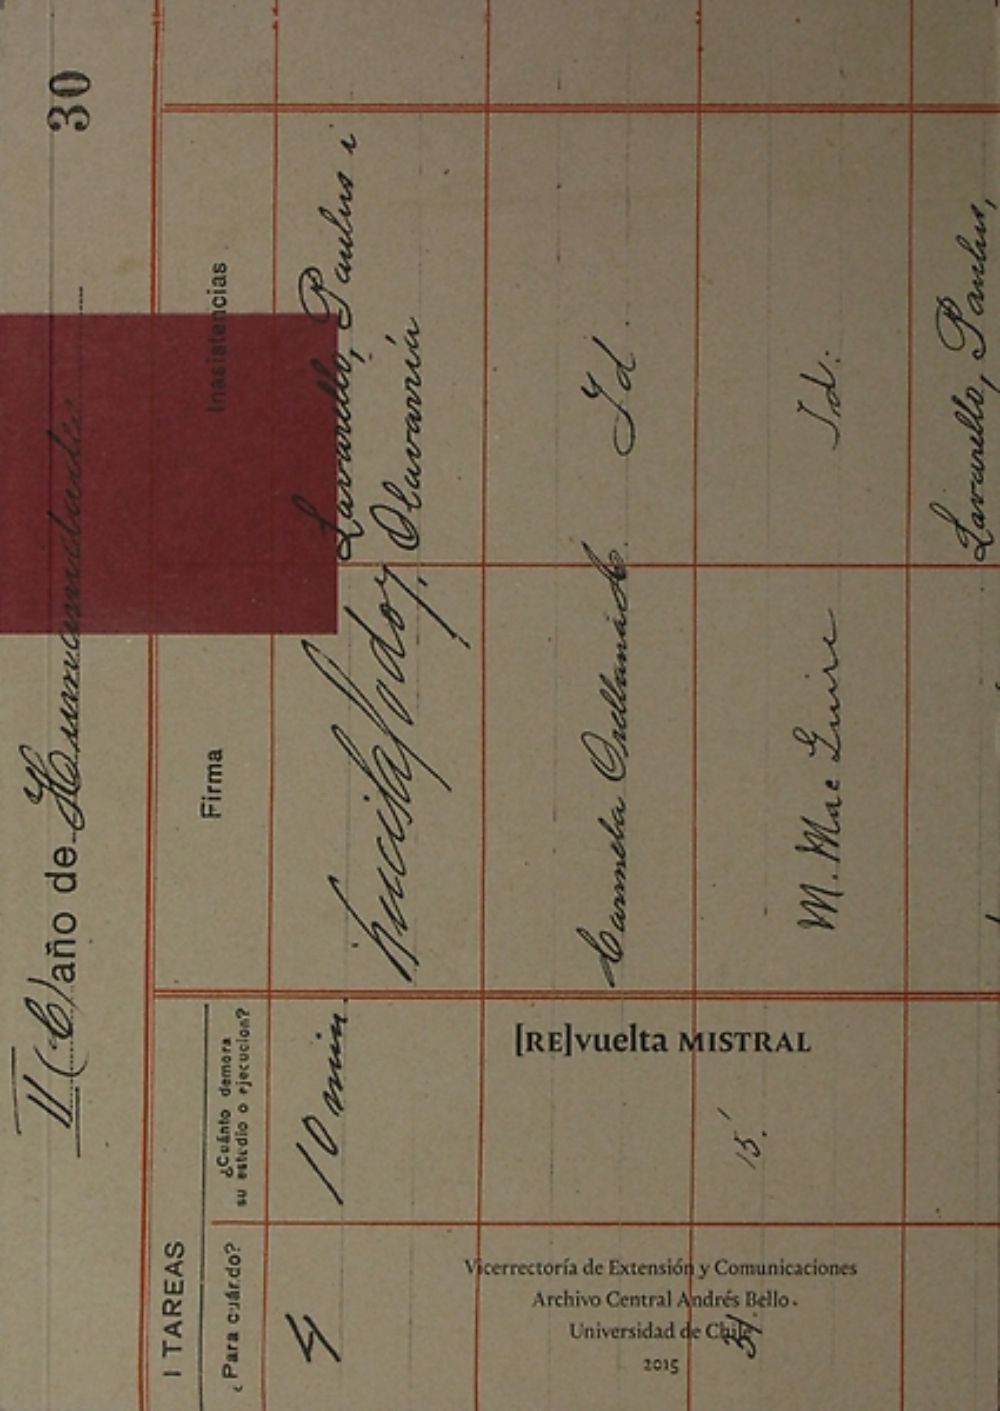 II (C) año de Humanidades 30
I TAREAS
¿Para cuándo?
¿Cuánto demora
su estudio o ejecucion?
Firma
Inasistencias
4 10 min. Lavarello, Paulus i
Olavarría
Carmela Orellana A. Id.
31. 15' M. Mac Guire Id.
Lavarello, Paulus,
[RE]vuelta MISTRAL
Vicerrectoría de Extensión y Comunicaciones
Archivo Central Andrés Bello
Universidad de Chile
2015